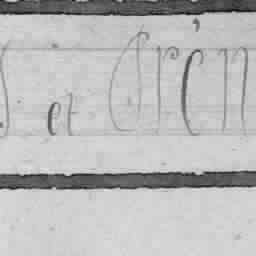 et Prén